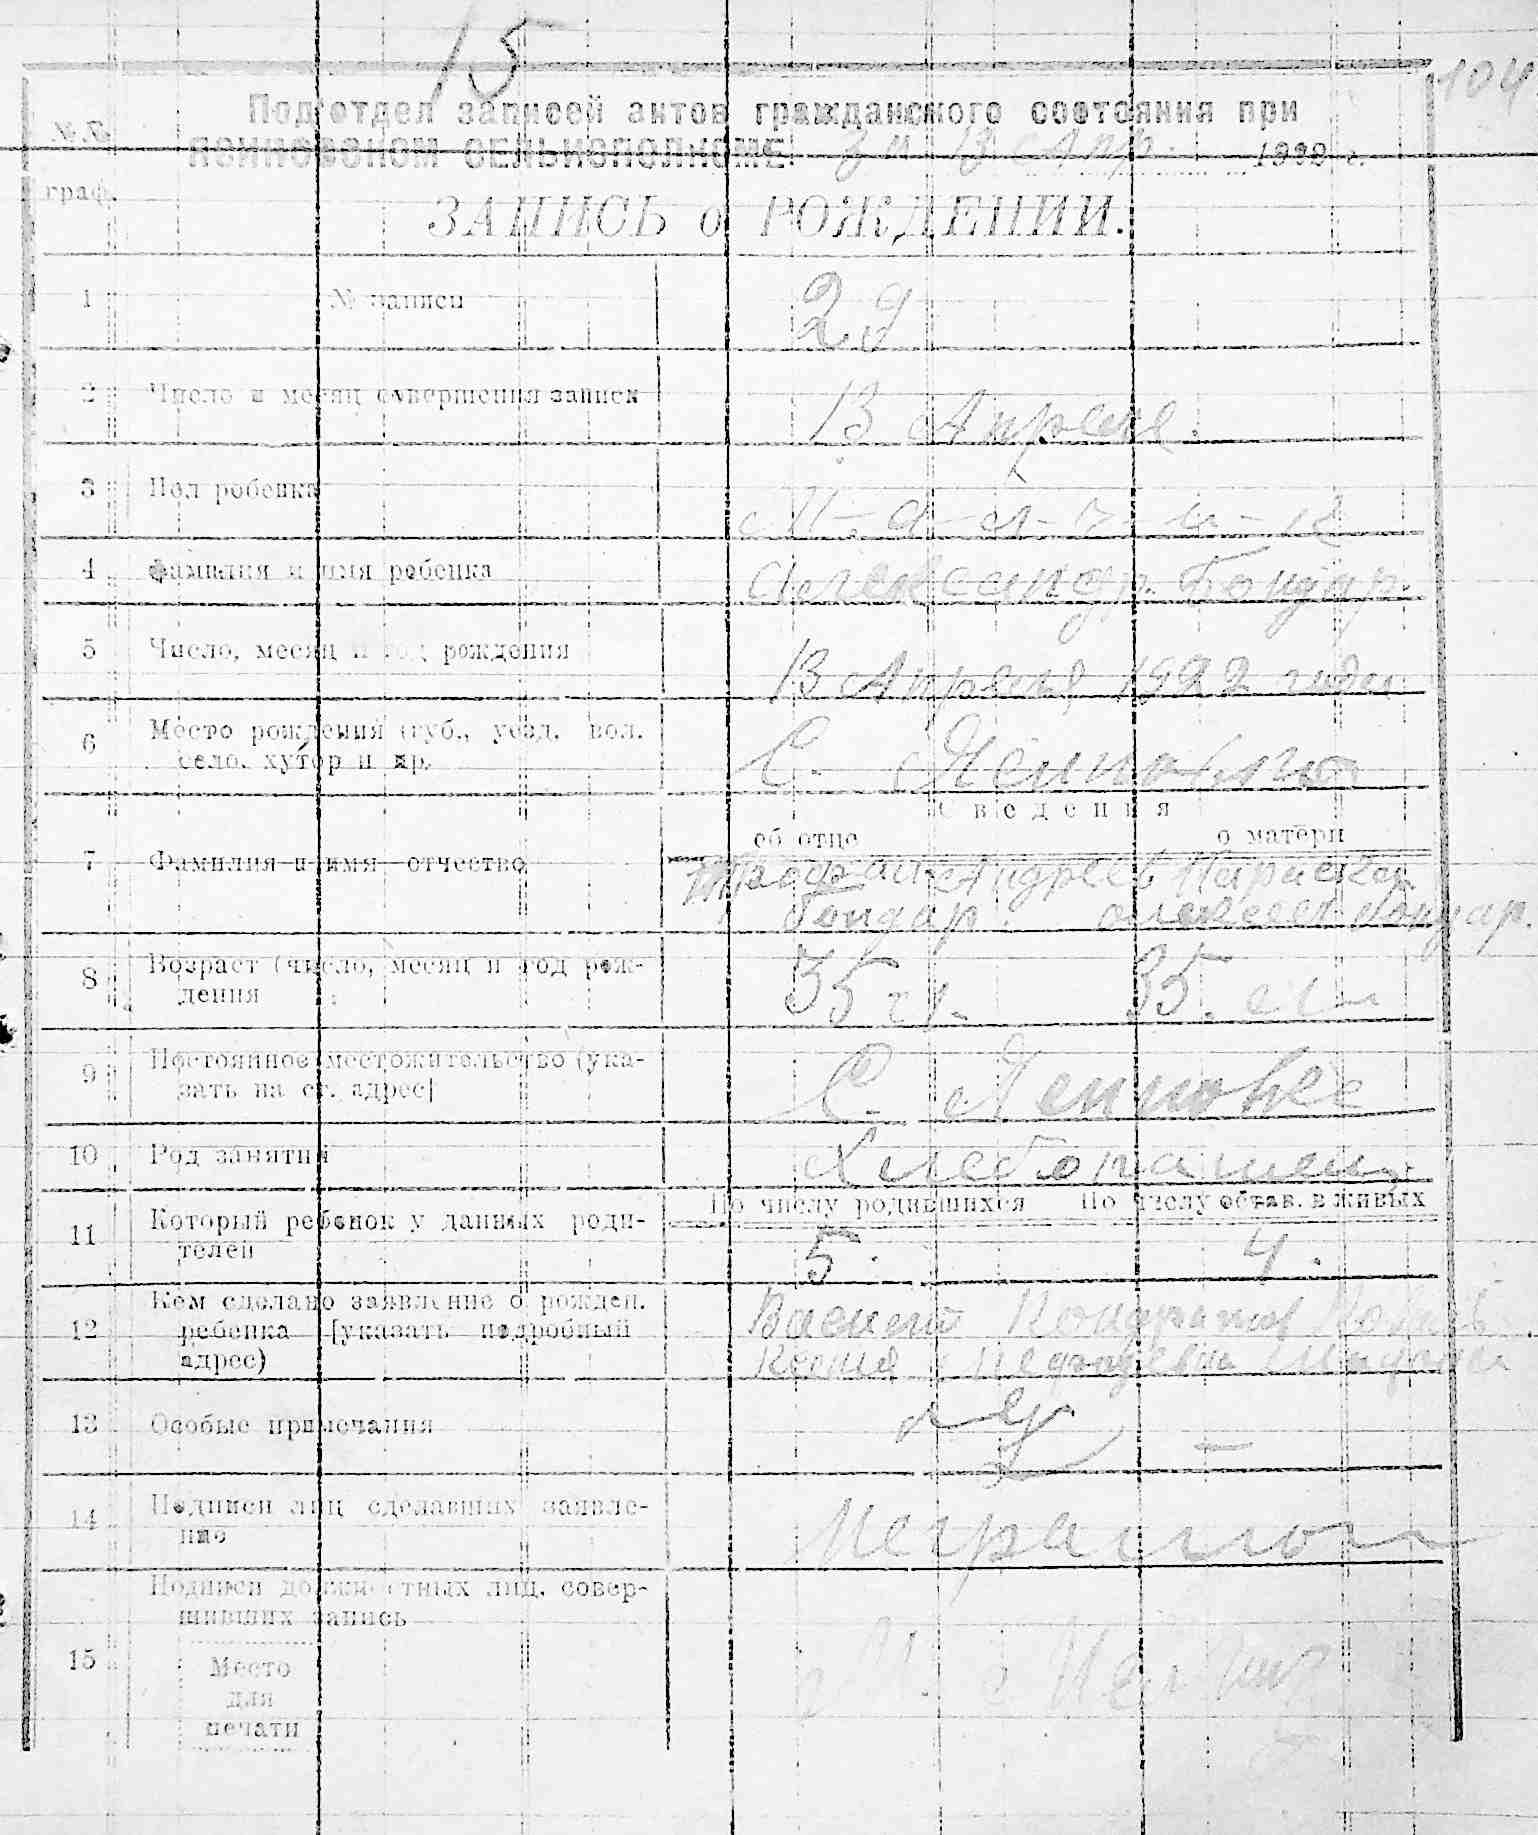 15
104
Подотдел записей актов гражданского состояния при
СЕЛЬИСПОЛКОМЕ. 13 Апр. 1922 г.
№№
граф.
ЗАПИСЬ о РОЖДЕНИИ.
1 № записи 29
2 Число и месяц совершения записи 13 Апреля.
3 Пол ребенка М-а-л-ч-и-к
4 Фамилия и имя ребенка Александр. Бондар.
5 Число, месяц и год рождения 13 Апреля 1922 года
6 Место рождения (губ., уезд. вол.
село. хутор и др. С.
Сведения
об отце о матери
7 Фамилия и имя отчество Андреев Параска
Бондар. Бондар.
8 Возраст (число, месяц и год рож-
дения 35 л. 35. л
9 Постоянное местожительство (ука-
зать на ст. адрес) С.
10 Род занятий Хлебопашец.
По числу родившихся По числу остав. в живых
11 Который ребенок у данных роди-
телей 5. 4.
12 Кем сделано заявление о рожден.
ребенка [указать подробный
адрес)
Василий Кондратов
Ксения
13 Особые примечания —
14 Подписи лиц сделавших заявле-
ние Неграмотн
Подписи должностных лиц. совер-
шивших запись
15
Место
для
печати